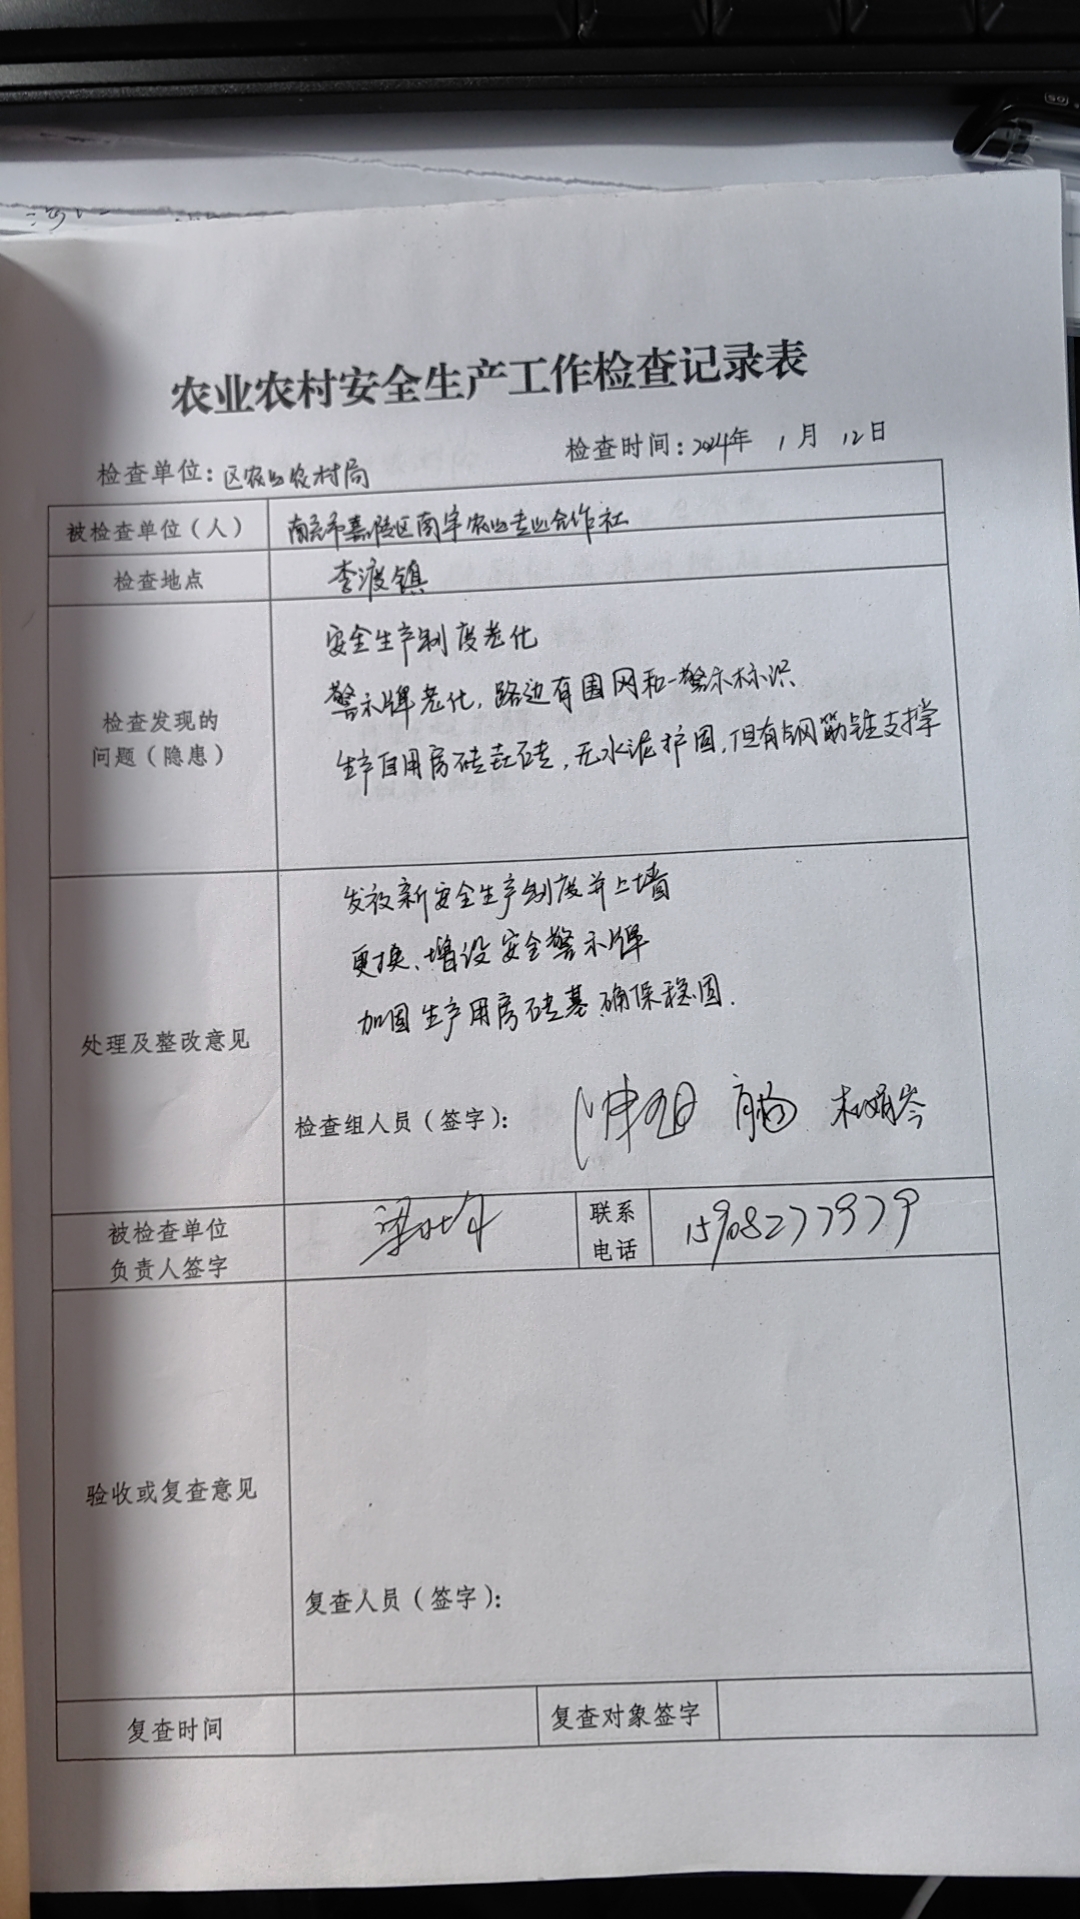 农业农村安全生产工作检查记录表
检查单位：区农业农村局 检查时间：2024年 1月 12日
被检查单位（人） 南充市嘉陵区南宇农业专业合作社
检查地点 李渡镇
检查发现的问题（隐患）
安全生产制度老化
警示牌老化，路边有围网和一警示标识
生产自用房砖垚砖，无水泥护固，但有钢筋 支撑
处理及整改意见
发放新安全生产制度并上墙
更换、增设安全警示牌
加固生产用房砖基确保稳固.
检查组人员（签字）：
被检查单位
负责人签字
联系
电话
15908277979
验收或复查意见
复查人员（签字）：
复查时间 复查对象签字